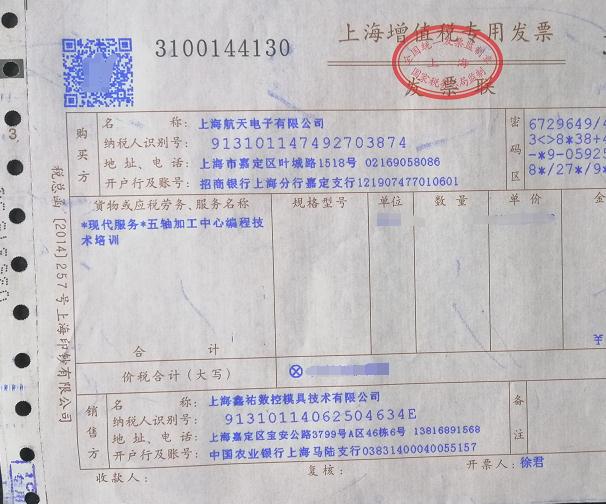 3100144130
上海增值税专用发票
全国统一发票监制章
上海
国家税务局监制
发票联
购买方
名称: 上海航天电子有限公司
纳税人识别号: 913101147492703874
地址、电话: 上海市嘉定区叶城路1518号 02169058086
开户行及账号: 招商银行上海分行嘉定支行121907477010601
密码区
6729649/4
3<>8*38+4
-*9-05925
8*/27*/9*
货物或应税劳务、服务名称 规格型号 单位 数量 单价 金
*现代服务*五轴加工中心编程技
术培训
合计
价税合计(大写) ⊗
销售方
名称: 上海鑫祐数控模具技术有限公司
纳税人识别号: 91310114062504634E
地址、电话: 上海嘉定区宝安公路3799号A区46栋6号 13816891568
开户行及账号: 中国农业银行上海马陆支行03831400040055157
备注
收款人: 复核: 开票人: 徐君
税总函[2014]257号上海印钞有限公司